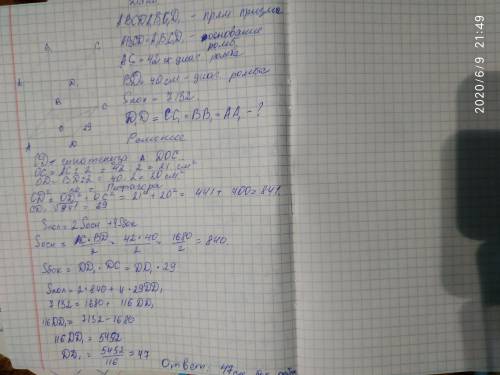 Дано
ABCDA₁B₁C₁D₁ - прям призма
ABCD=A₁B₁C₁D₁ - основание ромб.
AC = 42 см диаг. ромба
BD = 40 см - диаг. ромба
Sпол = 7132
D₁D = CC₁ = BB₁ = AA₁ - ?
Решение
CD - гипотенуза Δ DOC.
OC = AC : 2 = 42 : 2 = 21 см
OD = BD : 2 = 40 : 2 = 20 см
Пифагора
CD² = OD² + OC² = 21² + 20² = 441 + 400 = 841.
CD = √841 = 29
Sпол = 2Sосн + 4Sбок
Sосн = AC × BD / 2 = 42 × 40 / 2 = 1680 / 2 = 840.
Sбок = DD₁ · DC = DD₁ · 29
Sпол = 2 · 840 + 4 · 29DD₁
7132 = 1680 + 116 DD₁
116DD₁ = 7132 - 1680
116 DD₁ = 5452
DD₁ = 5452 / 116 = 47
Ответ: 47 см
A
B
C
D
O
29
D₁
2020/6/9 21:49